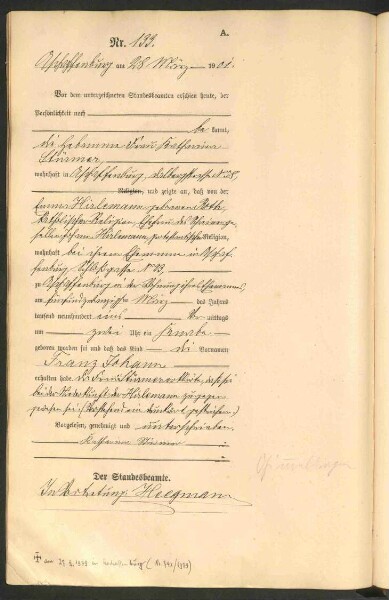 A.
Nr. 133.
Aschaffenburg am 28 März 1901.
Vor dem unterzeichneten Standesbeamten erschien heute, der
Persönlichkeit nach
be kannt,
die Hebamme Frau Katharina
Stürmer,
wohnhaft in Aschaffenburg, Dalbergstraße N. 28,
Religion, und zeigte an, daß von der
Emma Hirlemann geborenen Roth,
katholischer Religion, Ehefrau des
Hirlemann, protestantischer Religion,
wohnhaft bei ihrem Ehemanne in Aschaf-
fenburg, Schloßgasse N. 23,
zu Aschaffenburg in der Wohnung ihres Ehemannes,
am fünfundzwanzigsten März des Jahres
tausend neunhundert eins Vor mittags
um zwei Uhr ein Knabe
geboren worden sei und daß das Kind die Vornamen
Franz Johann
erhalten habe. Die Frau Stürmer erklärte, daß sie
bei der Niederkunft der Hirlemann zugegen
gewesen sei.
Vorgelesen, genehmigt und unterschrieben
Katharina Stürmer
Der Standesbeamte.
In Vertretung: Heegmann